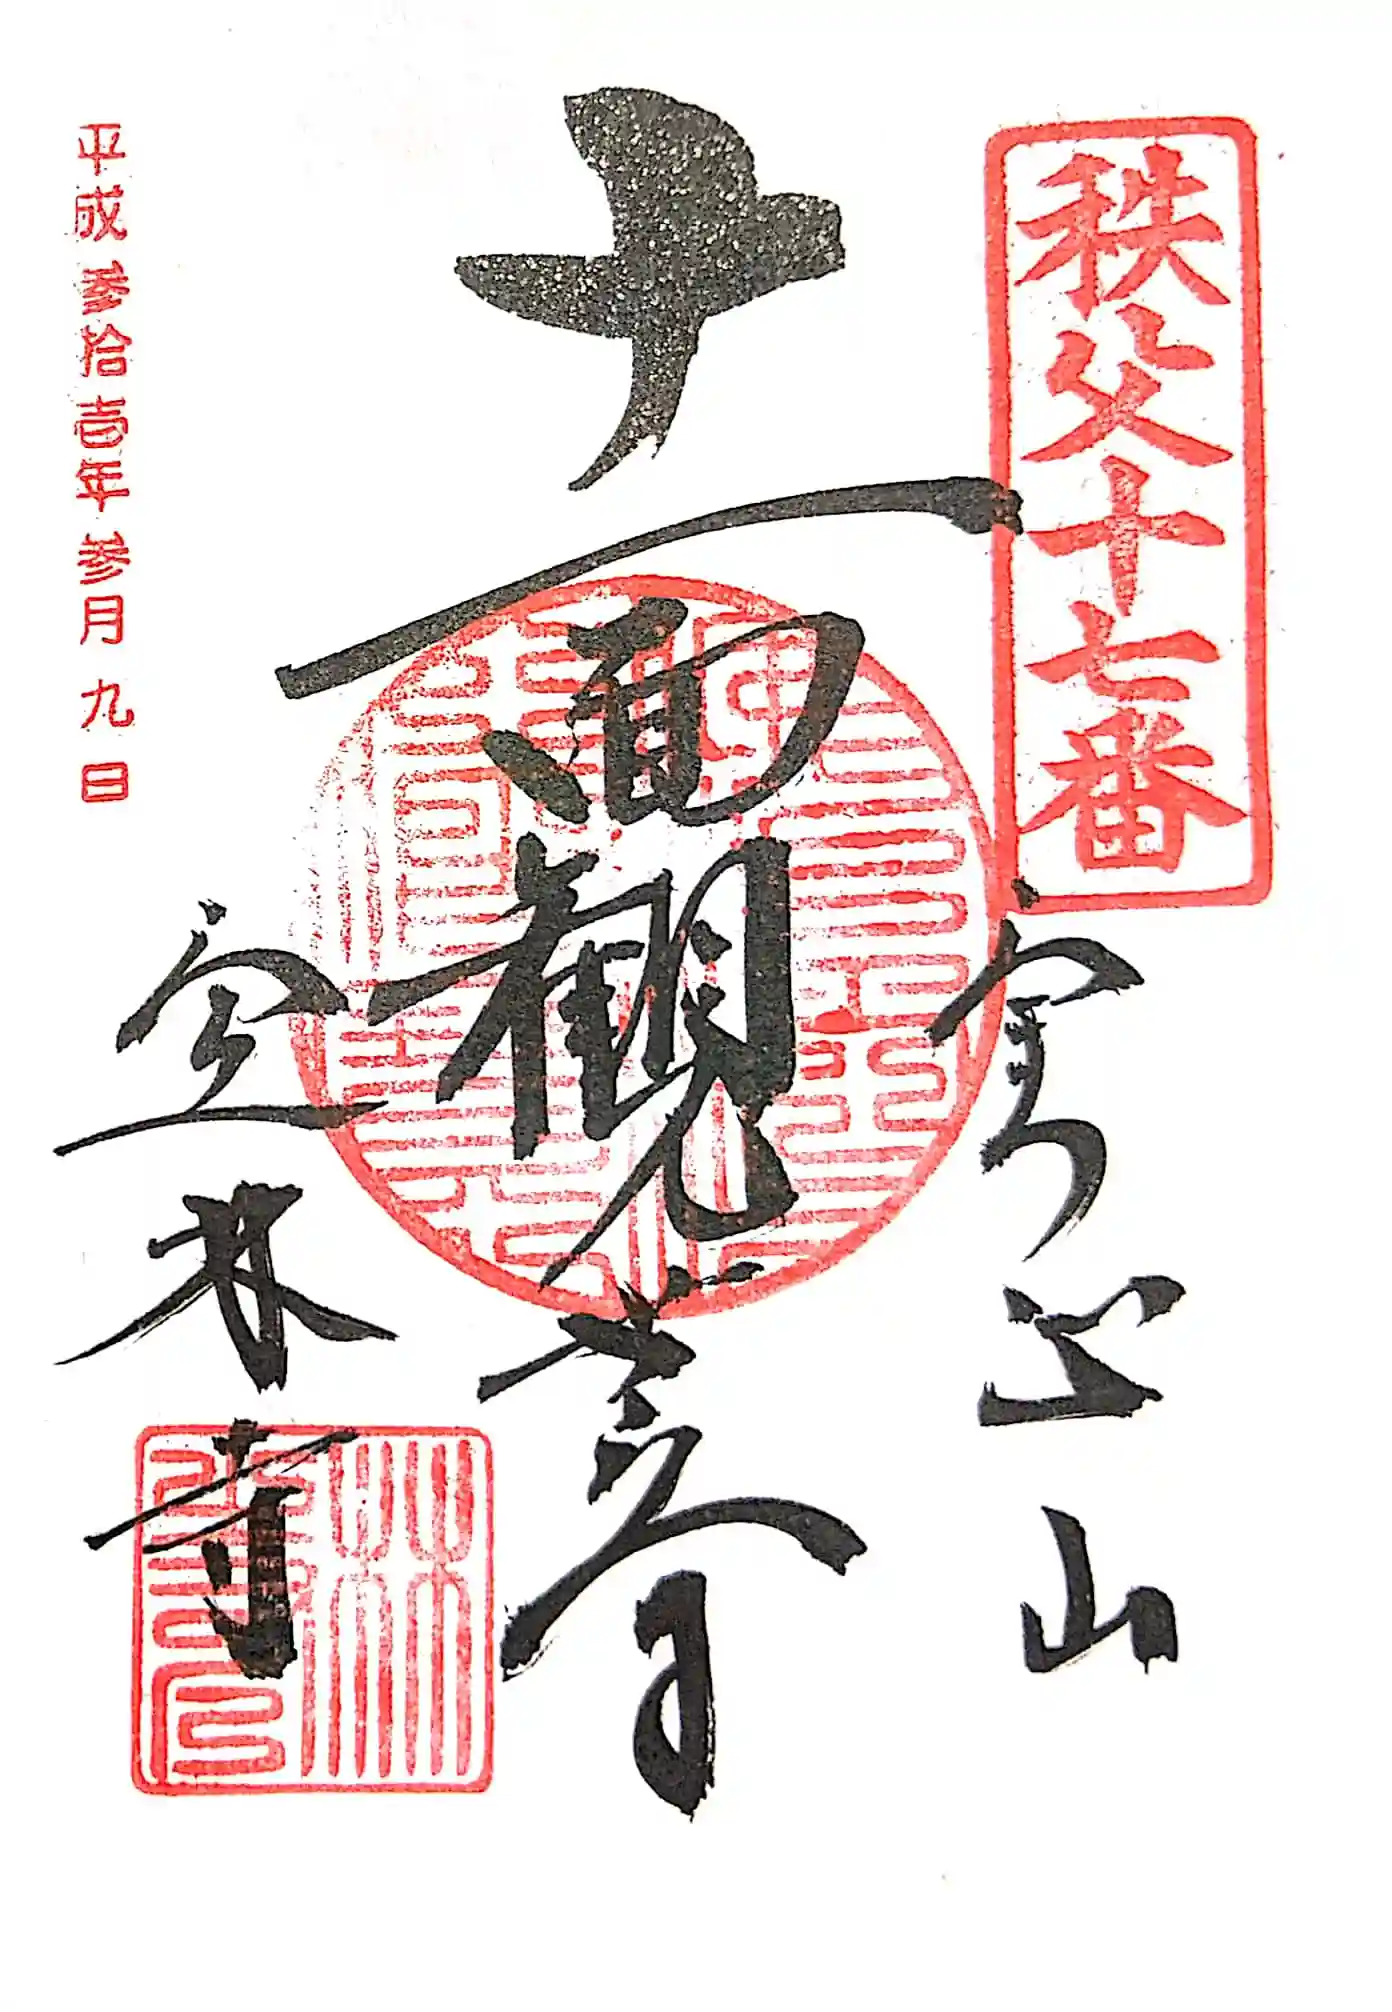 秩父十七番
実正山
十一面観世音
定林寺
平成参拾壹年参月九日